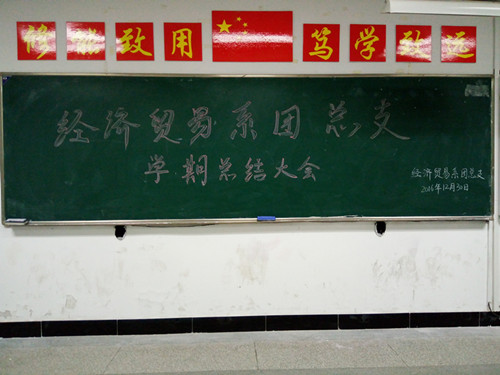 修能致用 笃学致远
经济贸易系团总支
学期总结大会
经济贸易系团总支
2016年12月30日